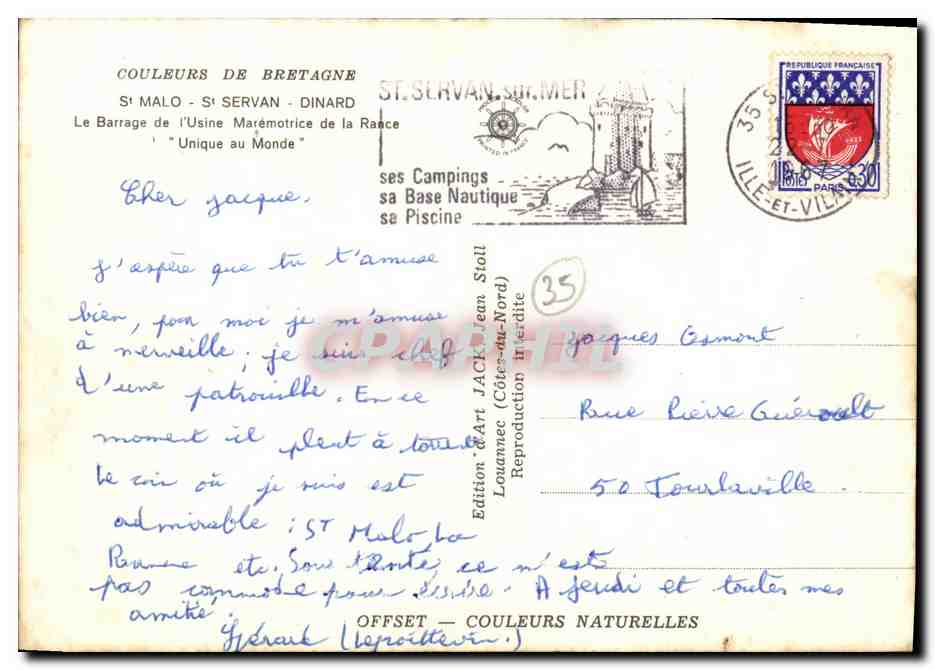 COULEURS DE BRETAGNE
St MALO - St SERVAN - DINARD
Le Barrage de l'Usine Marémotrice de la Rance
" Unique au Monde "
ST. SERVAN. sur. MER
ses Campings
sa Base Nautique
sa Piscine
35 S
ILLE-ET-VILAINE
REPUBLIQUE FRANÇAISE
POSTES PARIS 0,30
Cher Jacque.
J'espère que tu t'amuse
bien, pour moi je m'amuse
à merveille ; je suis chef
d'une patrouille. En ce
moment il pleut à
Le coin où je suis est
admirable : ST Malo, La
etc. Sous tente, ce n'est
pas commode pour écrire. A Jeudi et toutes mes
amitié.
Gérard (Lepoittevin.)
Edition d'Art JACK Jean Stoll
Louannec (Côtes-du-Nord)
Reproduction interdite
35
Jacques Osmont
Rue Pierre Guéroult
50 Tourlaville
OFFSET — COULEURS NATURELLES
CPARAMA